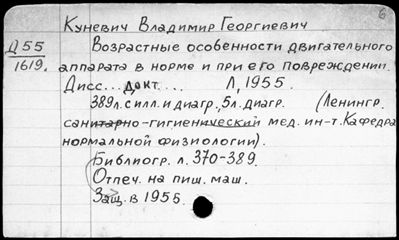 6
Куневич Владимир Георгиевич
Д55
1619.
Возрастные особенности двигательного
аппарата в норме и при его повреждении.
Дисс... докт. Л, 1955.
389л. с илл. и диагр., 5л. диагр. (Ленингр.
санитарно-гигиенический мед. ин-т. Кафедра
нормальной физиологии).
Библиогр. л. 370-389.
Отпеч. на пиш. маш.
Защ. в 1955.